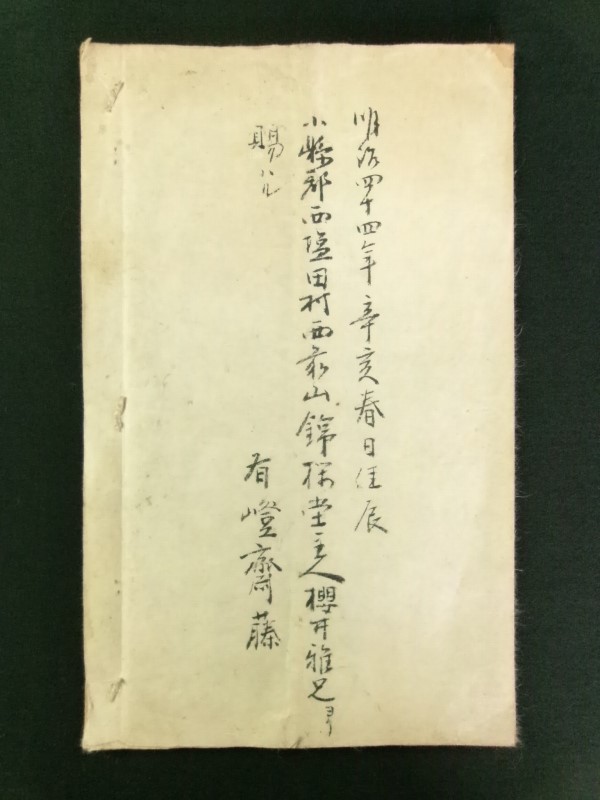 明治四十四年辛亥春日佳辰
小縣郡西塩田村西前山錦 堂主人櫻井雅兄ヨリ
賜ハル
有嶝齋藤